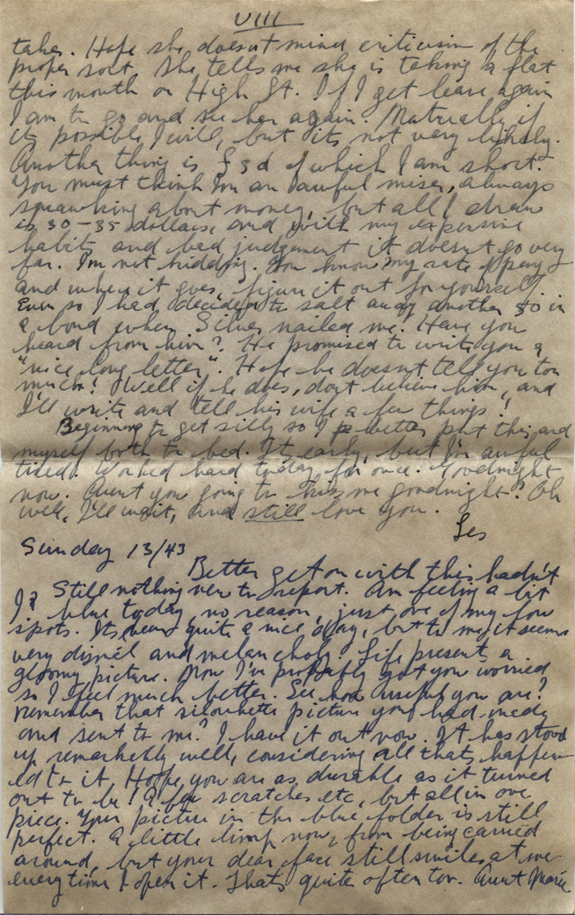 VIII
takes. Hope she doesn't mind criticism of the
proper sort. She tells me she is taking a flat
this month on High St. If I get leave again
I am to go and see her again. Naturally if
its possible I will, but its not very likely.
Another thing is £sd of which I am short.
You must think I'm an awful miser, always
squawking about money, but all I draw
is 30-35 dollars, and with my expensive
habits and bad judgement it doesn't go very
far. I'm not kidding. You know my rate of pay
and where it goes, figure it out for yourself.
Even so I had decided to salt away another 50 in
a bond when Silver nailed me. Have you
heard from him? He promised to write you a
"nice long letter". Hope he doesn't tell you too
much! Well if he does, don't believe him, and
I'll write and tell his wife a few things!
Beginning to get silly so I better put this and
myself both to bed. Its early, but I'm awful
tired. Worked hard today, for once. Goodnight
now. Arent you going to kiss me goodnight? Oh
well, I'll wait, and still love you.
Les
Sunday 13/43
Better get on with this hadn't
I? Still nothing new to report. Am feeling a bit
blue today, no reason, just one of my low
spots. Its been quite a nice day, but to me it seems
very dismal and melancholy. Life presents a
gloomy picture. Now I've probably got you worried
so I feel much better. See how useful you are?
Remember that silouhette picture you had made
and sent to me? I have it out now. It has stood
up remarkably well, considering all thats happen
ed to it. Hope you are as durable as it turned
out to be! A few scratches etc, but all in one
piece. Your picture in the blue folder is still
perfect. A little limp now, from being carried
around, but your dear face still smiles at me
everytime I open it. Thats quite often too. Aunt Marie